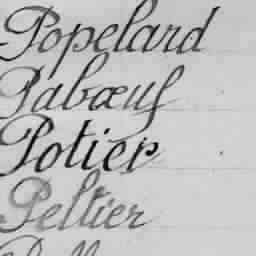 Popelard
Pabœuf
Potier
Peltier